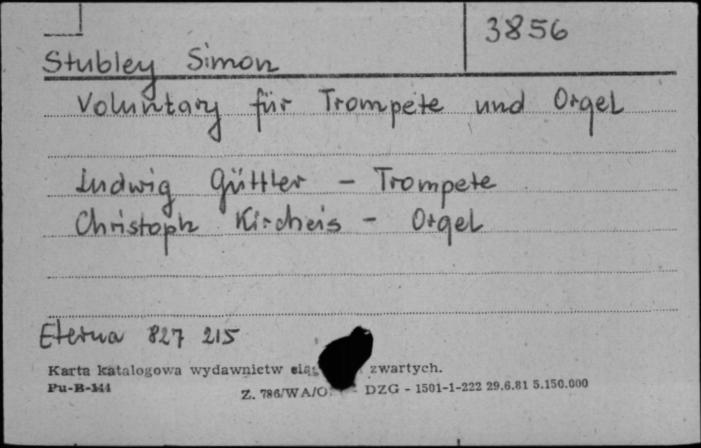 3856
Stubley Simon
Voluntary für Trompete und Orgel
Ludwig Güttler - Trompete
Christoph Kircheis - Orgel
Eterna 827 215
Karta katalogowa wydawnictw zwartych.
Pu-B-141
Z. 786/WA/O DZG - 1501-1-222 29.6.81 5.150.000